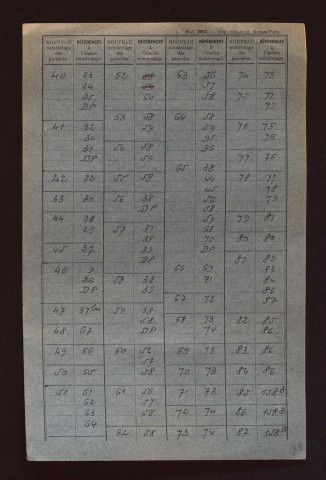 NOUVEAU numérotage des parcelles. RÉFÉRENCES à l'ancien numérotage
NOUVEAU numérotage des parcelles. RÉFÉRENCES à l'ancien numérotage
NOUVEAU numérotage des parcelles. RÉFÉRENCES à l'ancien numérotage
NOUVEAU numérotage des parcelles. RÉFÉRENCES à l'ancien numérotage
40 23
24
25
DP
41 32
30
31
DP
42 33
43 30
44 28
29
45 27
46 9
26
DP
47
48 67
49 66
50 65
51 61
62
63
64
52
60
53 58
59
54 58
59
55 58
56 38
DP
57 37
38
39
58 38
39
59 38
58
DP
60 56
57
58
61 56
57
58
62 58
63 56
57
58
64 58
59
95
96
65 38
44
45
56
58
59
68
70
DP
66 69
71
67 72
68 73
74
69 73
70 73
71 73
72 74
73 74
74 79
75 77
79
76 75
76
77 76
78 77
78
79
79 81
80 80
81 82
83
84
86
87
82 85
86
83 86
84 86
85 158B
86 158B
87 158B